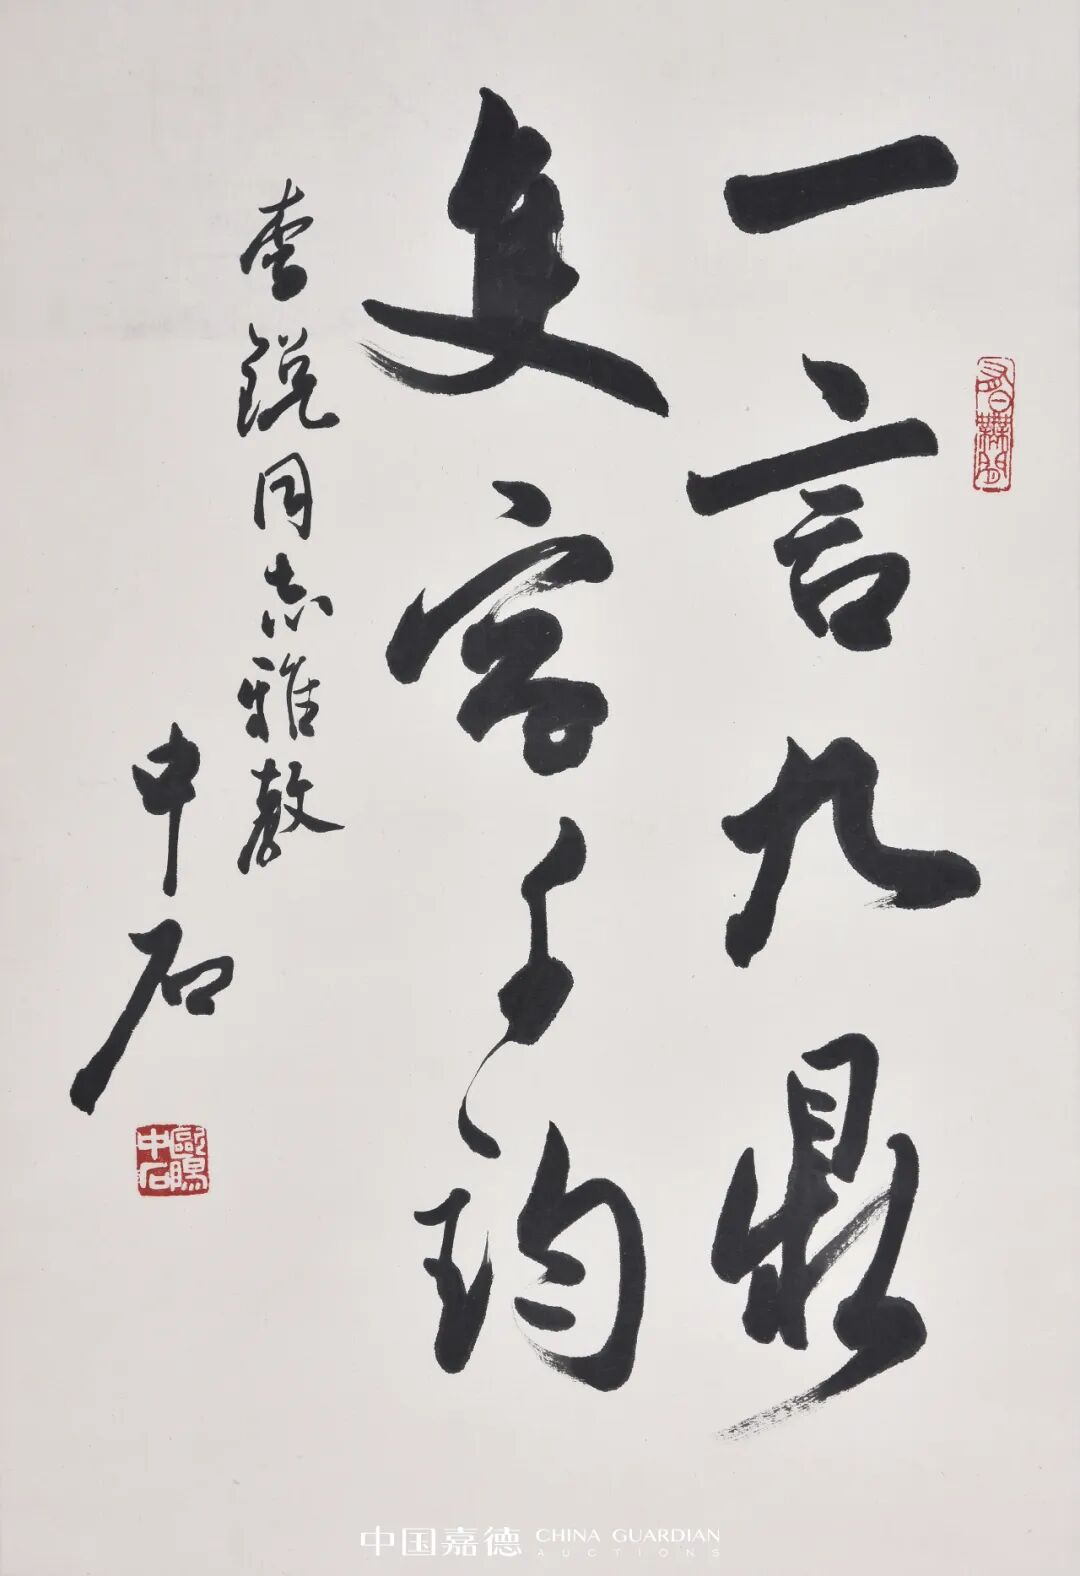 一言九鼎
隻字千鈞
李銳同志雅教
中石
歐陽中石
中国嘉德 CHINA GUARDIAN
AUCTIONS